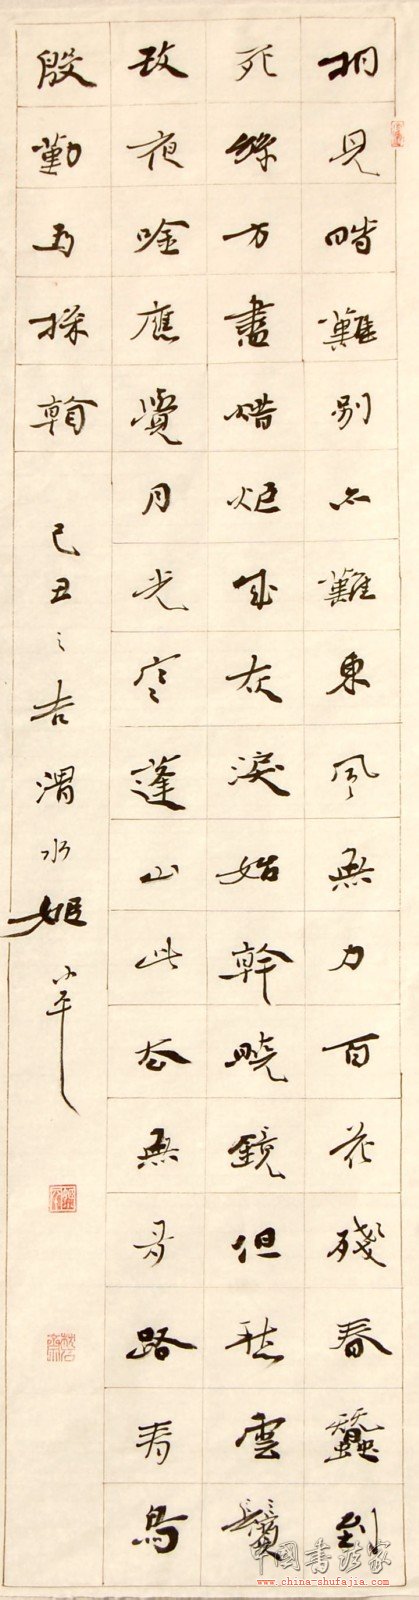 相見時難別亦難東風無力百花殘春蠶到
死絲方盡蜡炬成灰淚始幹曉鏡但愁雲鬢
改夜吟應覺月光寒蓬山此去無多路青鳥
殷勤為探看
己丑之吉渭水姬小平
中國書法家
www.china-shufajia.com